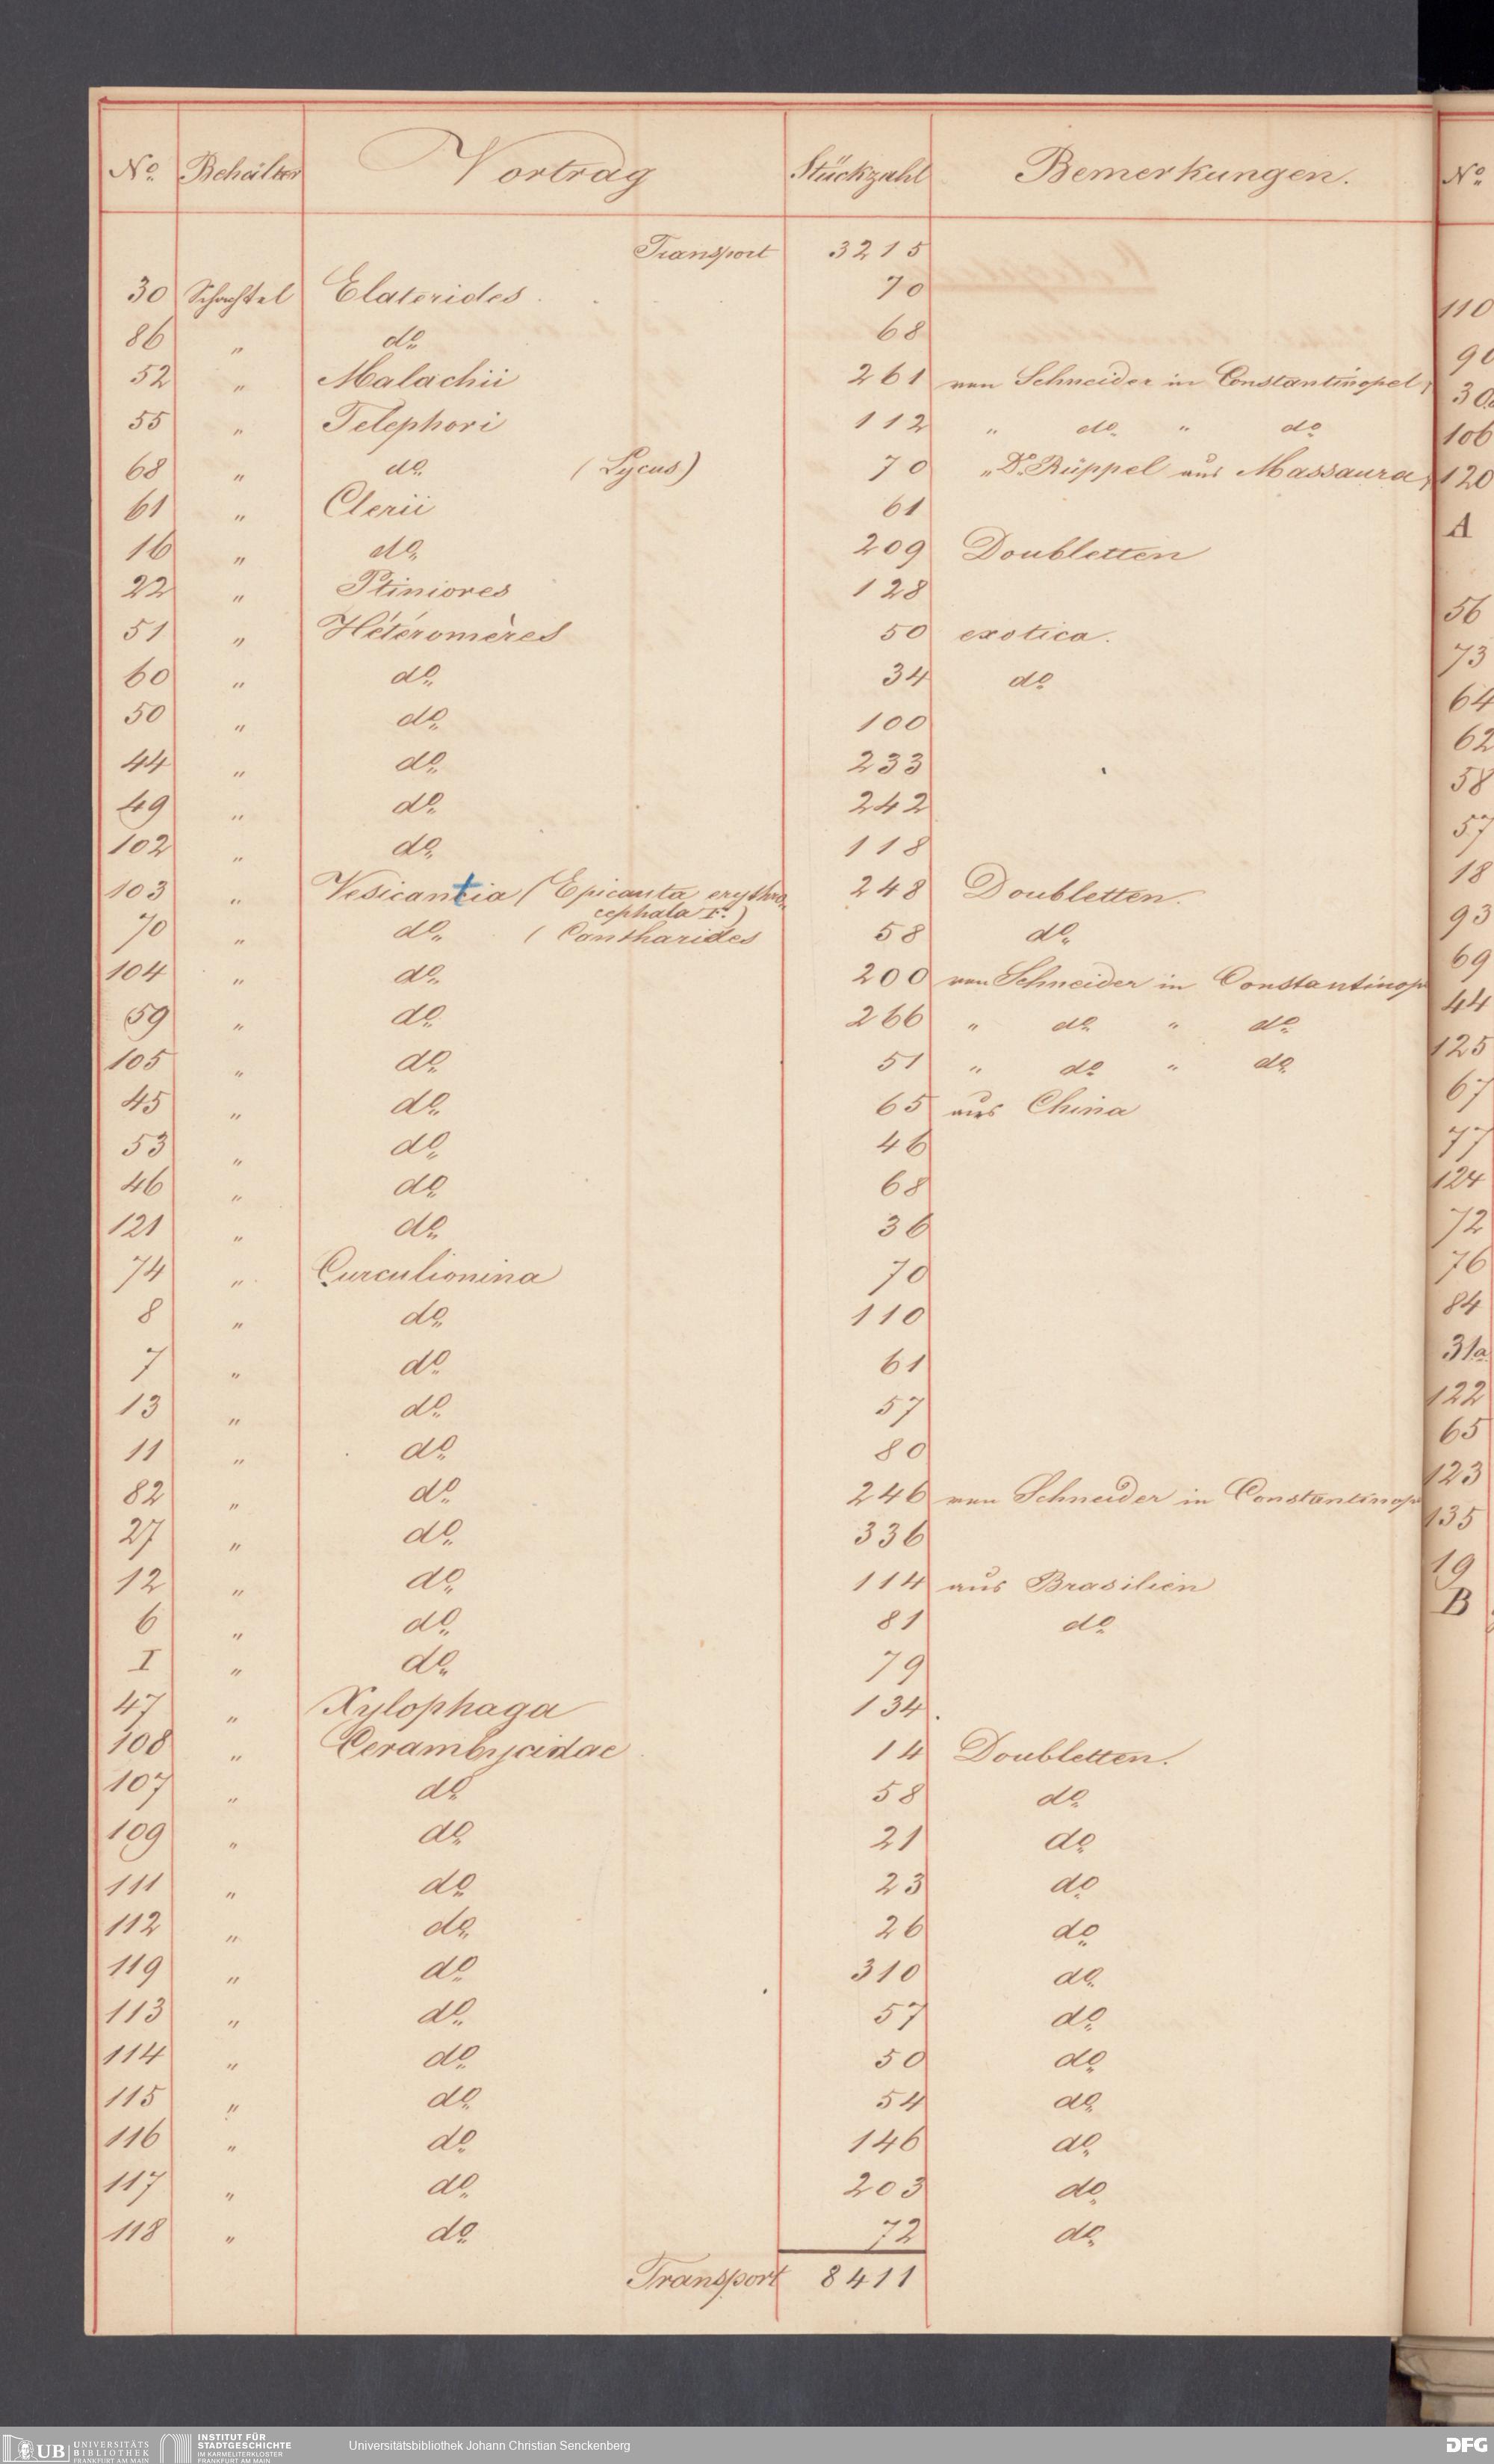 No. Behälter Vortrag Stückzahl Bemerkungen. No.
Transport 3215
30 Schachtel Elaterides. 70
86 " do. 68
52 " Malachii 261 von Schneider in Constantinopel,
55 " Telephori 112 " do. " do.
68 " do. (Lycus) 70 " Dr. Rüppel aus Massaura,
61 " Clerii 61
16 " do. 209 Doubletten
22 " Ptiniores 128
51 " Hétéromères 50 exotica.
60 " do. 34 do.
50 " do. 100
44 " do. 233
49 " do. 242
102 " do. 118
103 " Vesicantia (Epicauta erythro- 248 Doubletten.
cephala F.)
70 " do. (Cantharides 58 do.
104 " do. 200 von Schneider in Constantinop
59 " do. 266 " do. " do.
105 " do. 51 " do. " do.
45 " do. 65 aus China
53 " do. 46
46 " do. 68
121 " do. 36
74 " Curculionina 70
8 " do. 110
7 " do. 61
13 " do. 57
11 " do. 80
82 " do. 246 von Schneider in Constantinop
27 " do. 336
12 " do. 114 aus Brasilien
6 " do. 81 do.
I " do. 79
47 " Xylophaga 134.
108 " Cerambycidae 14 Doubletten.
107 " do. 58 do.
109 " do. 21 do.
111 " do. 23 do.
112 " do. 26 do.
119 " do. 310 do.
113 " do. 57 do.
114 " do. 50 do.
115 " do. 54 do.
116 " do. 146 do.
117 " do. 203 do.
118 " do. 72 do.
Transport 8411
110
90
30a
106
120
A
56
73
64
62
58
57
18
93
69
44
125
67
77
124
72
76
84
31a
122
65
123
135
19
B
UB UNIVERSITÄTS
BIBLIOTHEK
FRANKFURT AM MAIN
INSTITUT FÜR
STADTGESCHICHTE
IM KARMELITERKLOSTER
FRANKFURT AM MAIN
Universitätsbibliothek Johann Christian Senckenberg
DFG